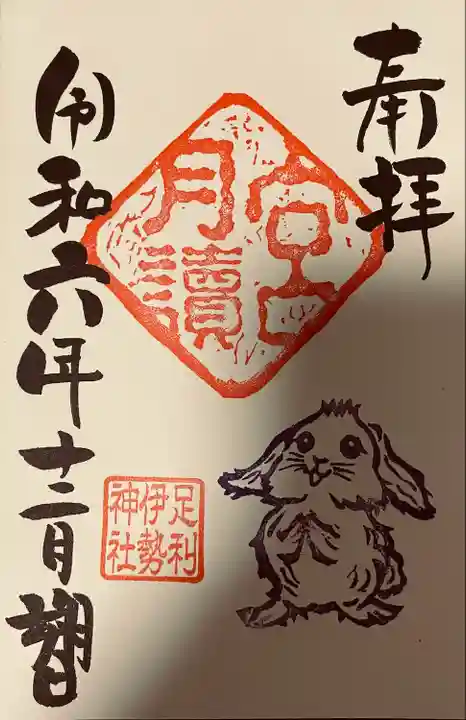 奉拝
月讀宮
足利
伊勢
神社
令和六年十二月朔日